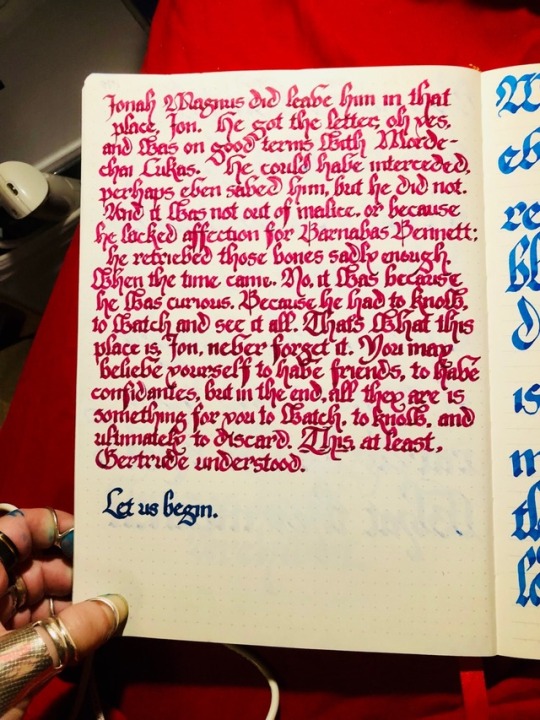 Jonah Magnus did leave him in that
place, Jon. He got the letter, oh yes,
and was on good terms with Morde-
chai Lukas. He could have interceded,
perhaps even saved him, but he did not.
And it was not out of malice, or because
he lacked affection for Barnabas Bennett;
he retrieved those bones sadly enough
when the time came. No, it was because
he was curious. Because he had to know,
to watch and see it all. That's what this
place is, Jon, never forget it. You may
believe yourself to have friends, to have
confidantes, but in the end, all they are is
something for you to watch, to know, and
ultimately to discard. This, at least,
Gertrude understood.
Let us begin.